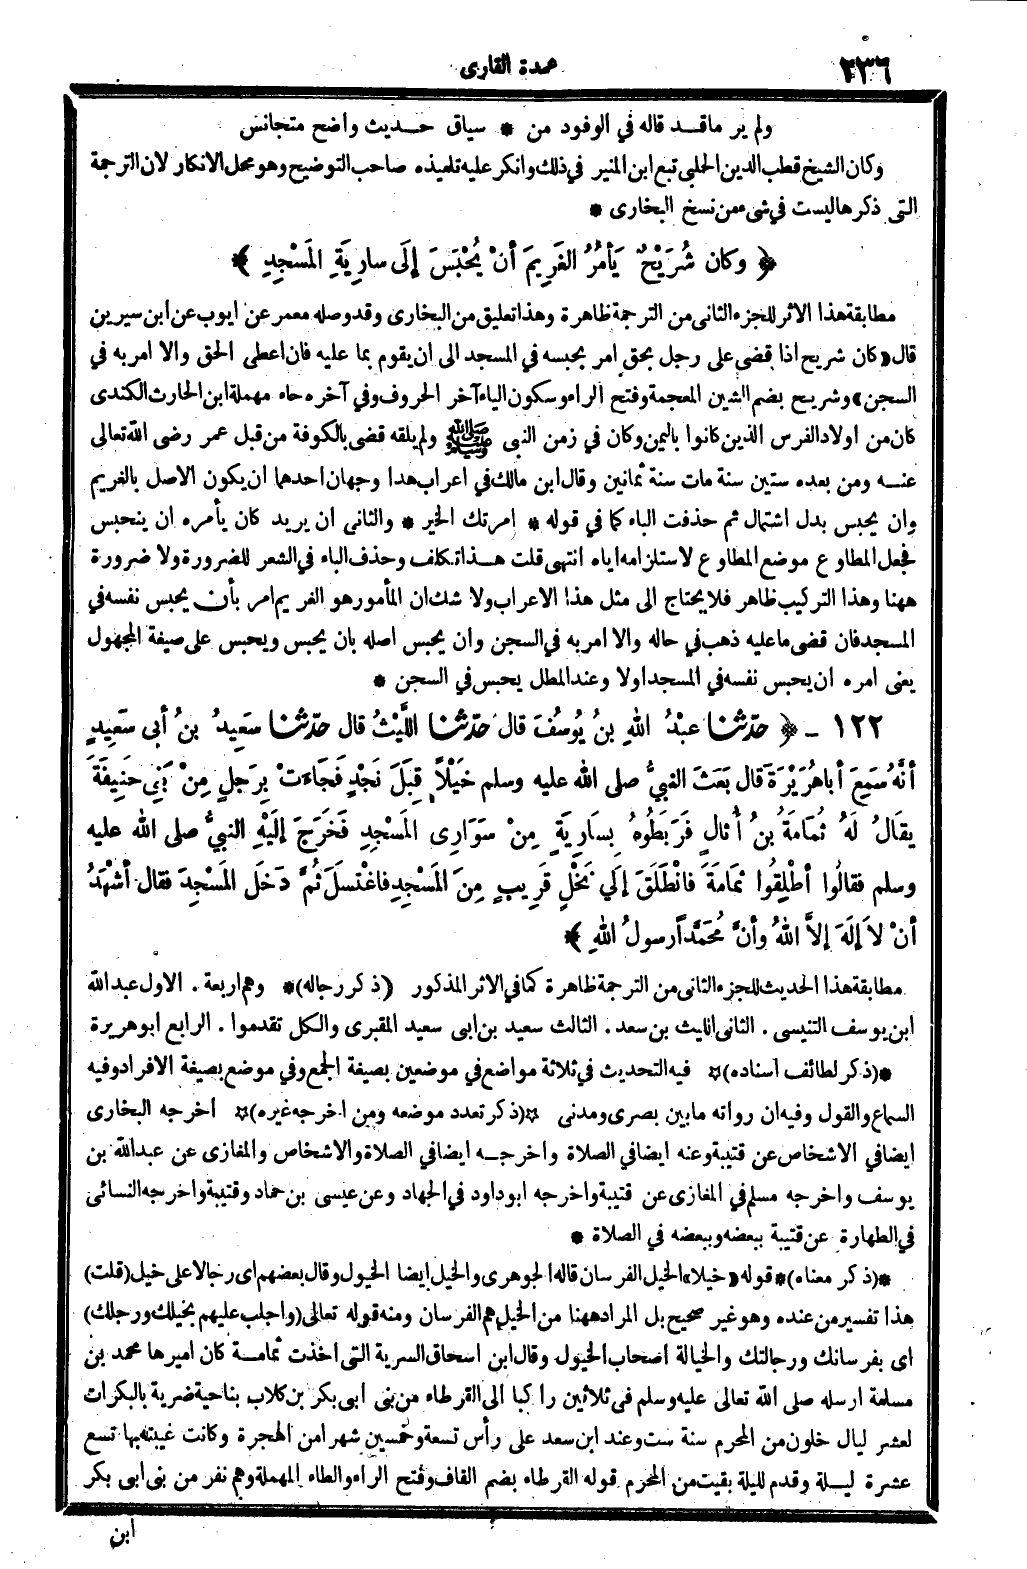 ٢٣٦
عمدة القارى
ولم ير ماقد قاله في الوفود من * سياق حديث واضح متجانس
وكان الشيخ قطب الدين الحلبي تبع ابن المنير في ذلك وانكر عليه تلميذه صاحب التوضيح وهو محل الانكار لان الترجمة
التى ذكرها ليست في شىء من نسخ البخارى *
﴿ وكان شُرَيْحٌ يَأمُرُ الغَرِيمَ أنْ يُحْبَسَ إلَى سارِيَةِ المَسْجِدِ ﴾
مطابقة هذا الاثر للجزء الثانى من الترجمة ظاهرة وهذا تعليق من البخارى وقد وصله معمر عن ايوب عن ابن سيرين
قال «كان شريح اذا قضى على رجل بحق امر بحبسه في المسجد الى ان يقوم بما عليه فان اعطى الحق والا امر به في
السجن» وشريح بضم الشين المعجمة وفتح الراء وسكون الياء آخر الحروف وفي آخره حاء مهملة ابن الحارث الكندى
كان من اولاد الفرس الذين كانوا باليمن وكان في زمن النبى ﷺ ولم يلقه قضى بالكوفة من قبل عمر رضى الله تعالى
عنه ومن بعده ستين سنة مات سنة ثمانين وقال ابن مالك في اعراب هذا وجهان احدهما ان يكون الاصل بالغريم
وان يحبس بدل اشتمال ثم حذفت الباء كما في قوله * امرتك الخير * والثانى ان يريد كان يأمره ان ينحبس
فجعل المطاوع موضع المطاوع لاستلزامه اياه انتهى قلت هذا تكلف وحذف الباء في الشعر للضرورة ولا ضرورة
ههنا وهذا التركيب ظاهر فلا يحتاج الى مثل هذا الاعراب ولا شك ان المأمور هو الغريم امر بأن يحبس نفسه في
المسجد فان قضى ما عليه ذهب في حاله والا امر به في السجن وان يحبس اصله بان يحبس ويحبس على صيغة المجهول
يعنى امره ان يحبس نفسه في المسجد اولا وعند المطل يحبس في السجن *
١٢٢ - ﴿ حدّثنا عبْدُ اللهِ بنُ يُوسُفَ قال حدّثنا اللَّيْثُ قال حدّثنا سَعِيدُ بنُ أبى سَعِيدٍ
أنَّهُ سَمِعَ أباهُرَيْرَةَ قال بَعَثَ النبيُّ صلى الله عليه وسلم خَيْلاً قِبَلَ نَجْدٍ فَجَاءَتْ بِرَجلٍ مِنْ بَنِي حَنِيفَةَ
يقَالُ لَهُ ثُمَامَةُ بنُ أُثالٍ فَرَبَطُوهُ بِسَارِيَةٍ مِنْ سَوَارِى المَسْجِدِ فَخَرَجَ إلَيْهِ النبيُّ صلى الله عليه
وسلم فقالُوا أطْلِقُوا ثمَامَةَ فانْطَلَقَ إلَي نَخْلٍ قَرِيبٍ مِنَ المَسْجِدِ فاغْتسلَ ثُمَّ دَخَل المَسْجِدَ فقال أشْهَدُ
أنْ لاَ إلَهَ إلاَّ اللهُ وأنَّ مُحَمَّدًا رسولُ اللهِ ﴾
مطابقة هذا الحديث للجزء الثانى من الترجمة ظاهرة كما في الاثر المذكور (ذكر رجاله) * وهم اربعة . الاول عبد الله
ابن يوسف التنيسى . الثانى الليث بن سعد . الثالث سعيد بن ابى سعيد المقبرى والكل تقدموا . الرابع ابو هريرة
*(ذكر لطائف اسناده)* فيه التحديث في ثلاثة مواضع في موضعين بصيغة الجمع وفي موضع بصيغة الافراد وفيه
السماع والقول وفيه ان رواته ما بين بصرى ومدنى *(ذكر تعدد موضعه ومن اخرجه غيره)* اخرجه البخارى
ايضا في الاشخاص عن قتيبة وعنه ايضا في الصلاة واخرجه ايضا في الصلاة والاشخاص والمغازى عن عبد الله بن
يوسف واخرجه مسلم في المغازى عن قتيبة واخرجه ابو داود في الجهاد وعن عيسى بن حماد وقتيبة واخرجه النسائى
في الطهارة عن قتيبة ببعضه وببعضه في الصلاة *
*(ذكر معناه)* قوله «خيلا» الخيل الفرسان قاله الجوهرى والخيل ايضا الخيول وقال بعضهم اى رجالا على خيل (قلت)
هذا تفسير من عنده وهو غير صحيح بل المراد ههنا من الخيل هم الفرسان ومنه قوله تعالى (واجلب عليهم بخيلك ورجلك)
اى بفرسانك ورجالتك والخيالة اصحاب الخيول وقال ابن اسحاق السرية التى اخذت ثمامة كان اميرها محمد بن
مسلمة ارسله صلى الله تعالى عليه وسلم فى ثلاثين راكبا الى القرطاء من بنى ابى بكر بن كلاب بناحية ضرية بالبكرات
لعشر ليال خلون من المحرم سنة ست وعند ابن سعد على رأس تسعة وخمسين شهرا من الهجرة وكانت غيبته بها تسع
عشرة ليلة وقدم لليلة بقيت من المحرم قوله القرطاء بضم القاف وفتح الراء والطاء المهملة وهم نفر من بنى ابى بكر
ابن